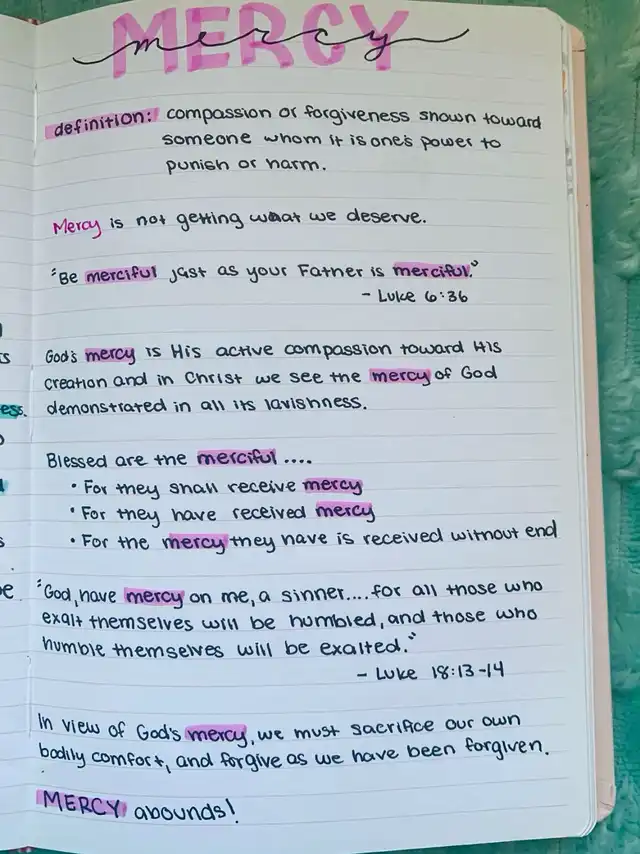 MERCY
mercy
definition: compassion or forgiveness shown toward
someone whom it is one's power to
punish or harm.
Mercy is not getting what we deserve.
"Be merciful just as your Father is merciful."
- Luke 6:36
God's mercy is His active compassion toward His
creation and in Christ we see the mercy of God
demonstrated in all its lavishness.
Blessed are the merciful....
• For they shall receive mercy
• For they have received mercy
• For the mercy they have is received without end
"God, have mercy on me, a sinner....for all those who
exalt themselves will be humbled, and those who
humble themselves will be exalted."
- Luke 18:13-14
In view of God's mercy, we must sacrifice our own
bodily comfort, and forgive as we have been forgiven.
MERCY abounds!